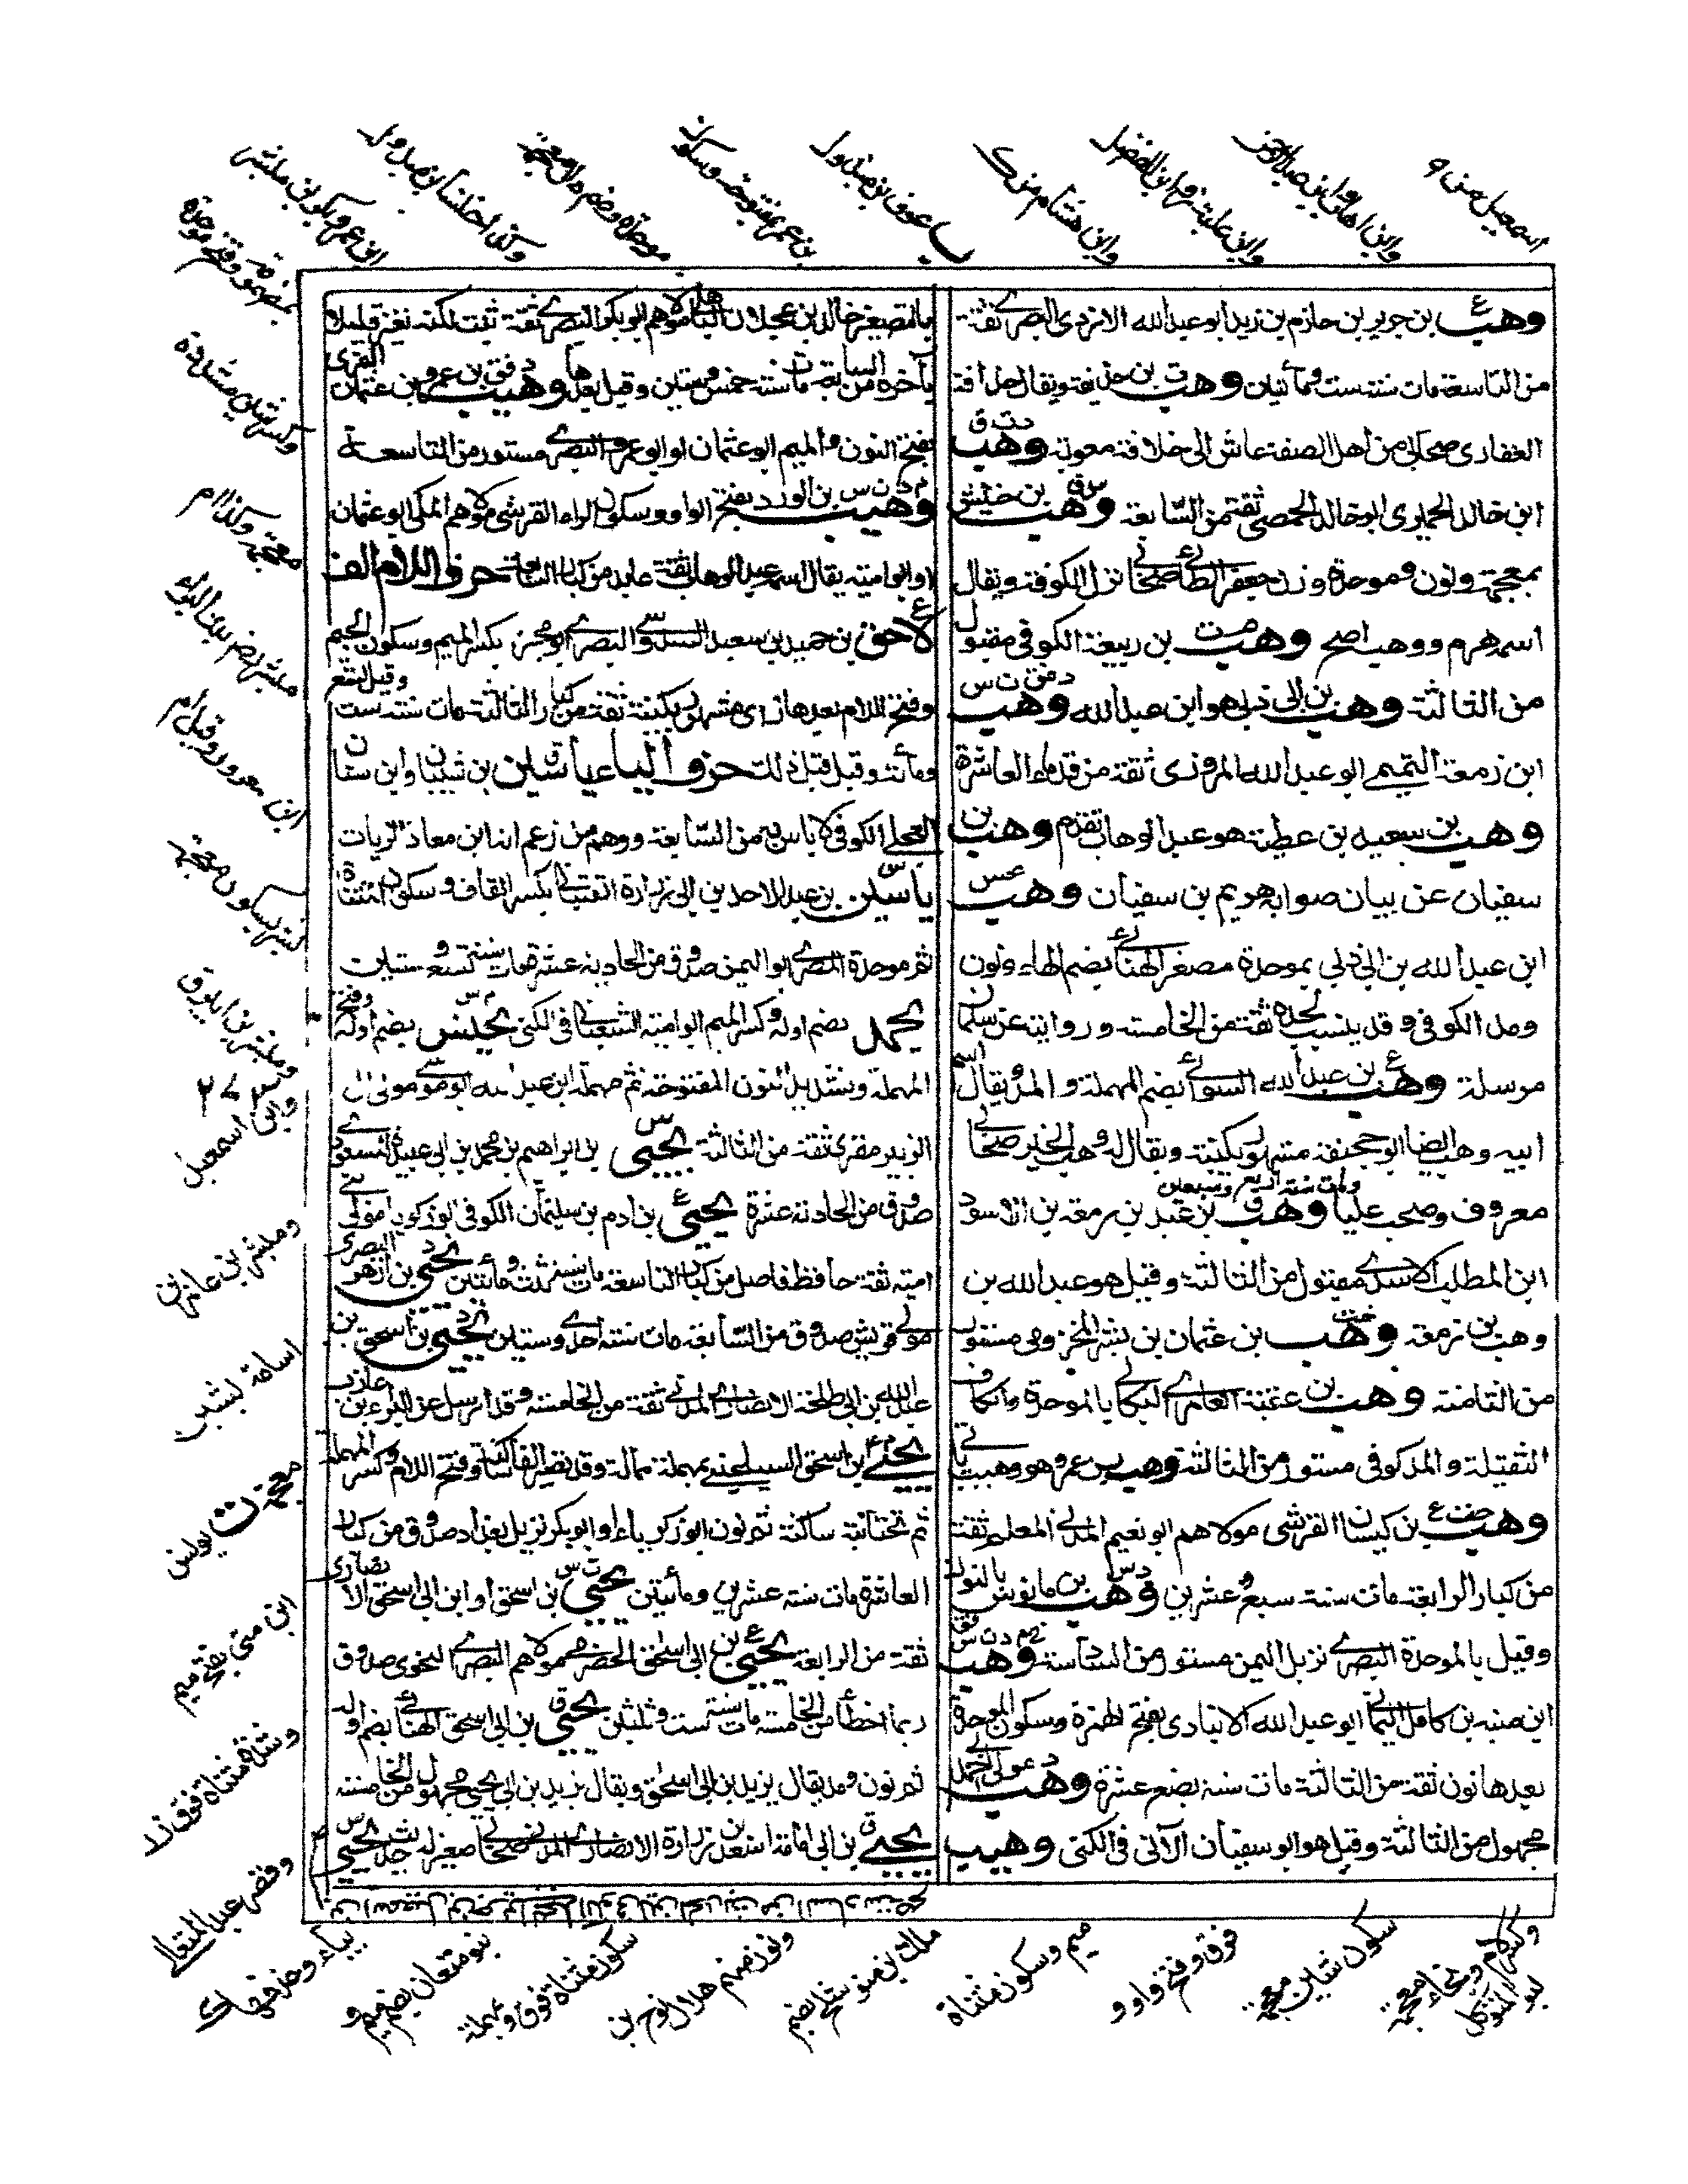 وهب بن جرير بن حازم بن زيد ابو عبد الله الازدي البصري ثقة
من التاسعة مات سنة ست ومأتين وهب بن حذيفة ويقال حذافة
الغفاري صحابي من اهل الصفة عاش الى خلافة معوية وهب
ابن خالد الحميري ابو خالد الحمصي ثقة من السابعة وهب بن خنبش
بمعجمة ونون وموحدة وزن جعفر الطائي صحابي نزل الكوفة ويقال
اسمه هرم ووهب اصح وهب بن ربيعة الكوفي مقبول
من الثالثة وهب بن ابي دبي هو ابن عبد الله وهب
ابن زمعة التميمي ابو عبد الله المروزي ثقة من قدماء العاشرة
وهب بن سعيد بن عطية هو عبد الوهاب تقدم وهب بن
سفيان عن بيان صوابه هريم بن سفيان وهب
ابن عبد الله بن ابي دبي بموحدة مصغر الهنائي بضم الهاء ونون
ومد الكوفي وقد ينسب لجده ثقة من الخامسة وروايته عن سلمان
مرسلة وهب بن عبد الله السوائي بضم المهملة والمد ويقال اسم
ابيه وهب ايضا ابو جحيفة مشهور بكنيته ويقال له وهب الخير صحابي
معروف وصحب عليا ومات سنة اربع وسبعين وهب بن عبد بن زمعة بن الاسود
ابن المطلب الاسدي مقبول من الثالثة وقيل هو عبد الله بن
وهب بن زمعة وهب بن عثمان بن بشر المخزومي مستور
من الثامنة وهب بن عقبة العامري البكائي بالموحدة والكاف
الثقيلة والمد كوفي مستور من الثالثة وهب بن عمرو هو وهيب ياتي
وهب بن كيسان القرشي مولاهم ابو نعيم المدني المعلم ثقة
من كبار الرابعة مات سنة سبع وعشرين وهب بن مانوس بالنون
وقيل بالموحدة البصري نزيل اليمن مستور من السادسة وهب
ابن منبه بن كامل اليماني ابو عبد الله الابناوي بفتح الهمزة وسكون الموحدة
بعدها نون ثقة من الثالثة مات سنة بضع عشرة وهب مولى ابي احمد
مجهول من الثالثة وقيل هو ابو سفيان الآتي في الكنى وهيب
بالتصغير خالد بن عجلان الباهلي مولاهم ابو بكر البصري ثقة ثبت لكنه تغير قليلا
بآخره من السابعة مات سنة خمس وستين وقيل بعدها وهيب بن عمرو بن عثمان النمري
بفتح النون والميم ابو عثمان او ابو عمرو البصري مستور من التاسعة
وهيب بن الورد بفتح الواو وسكون الراء القرشي مولاهم المكي ابو عثمان
او ابو امية يقال اسمه عبد الوهاب ثقة عابد من كبار السابعة حرف اللام الف
لاحق بن حميد بن سعيد السدوسي البصري ابو مجلز بكسر الميم وسكون الجيم
وفتح اللام بعدها زاي مشهور بكنيته ثقة من كبار الثالثة مات سنة ست وقيل تسع
ومائة وقيل قبل ذلك حرف الياء ياسين بن شيبان وابن سنان
العجلي الكوفي لا باس به من السابعة ووهم من زعم انه ابن معاذ الزيات
ياسين بن عبد الاحد بن ابي زرارة القتباني بكسر القاف وسكون المثناة
ثم موحدة المصري ابو اليمن صدوق من الحادية عشرة مات سنة تسع وستين
يحمد بضم اوله وكسر الميم ابو امية الشعباني في الكنى يحنس بضم اوله وفتح
المهملة وتشديد النون المفتوحة ثم مهملة ابن عبد الله ابو موسى مولى آل
الزبير مقرئ ثقة من الثالثة يحيى بن ابراهيم بن محمد بن ابي عبيدة المسعودي
صدوق من الحادية عشرة يحيى بن ادم بن سليمان الكوفي ابو زكريا مولى بني
امية ثقة حافظ فاضل من كبار التاسعة مات سنة ثلث ومائتين يحيى بن ازهر البصري
مولى قريش صدوق من السابعة مات سنة احدى وستين يحيى بن اسحق بن
عبد الله بن ابي طلحة الانصاري المدني ثقة من الخامسة وقد ارسل عن البراء بن عازب
يحيى ابن اسحق السيلحيني بمهملة ممالة وقد تصير الفا ساكنة وفتح اللام وكسر المهملة
ثم تحتانية ساكنة ثم نون ابو زكرياء او ابو بكر نزيل بغداد صدوق من كبار
العاشرة مات سنة عشرين ومأتين يحيى بن اسحق او ابن ابي اسحق الانصاري
ثقة من الرابعة يحيى بن ابي اسحق الحضرمي مولاهم البصري النحوي صدوق
ربما اخطأ من الخامسة مات سنة ست وثلثين يحيى بن ابي اسحق الهنائي بضم اوله
ثم نون ومد يقال يزيد بن ابي اسحق ويقال يزيد بن ابي يحيى مجهول من الخامسة
يحيى بن ابي امامة اسعد بن زرارة الانصاري المدني صحابي صغير له حديث يحيى
وابن هشام من ك
عوف بن مبذول
وابن اسمعيل
ومبشر بن
اسامة بشير
يونس
ابن متى بفتح ميم
وقصر عبد المتعالي
ميم وسكون مثناة
فوق وفتح واو و
سكون شين معجمة